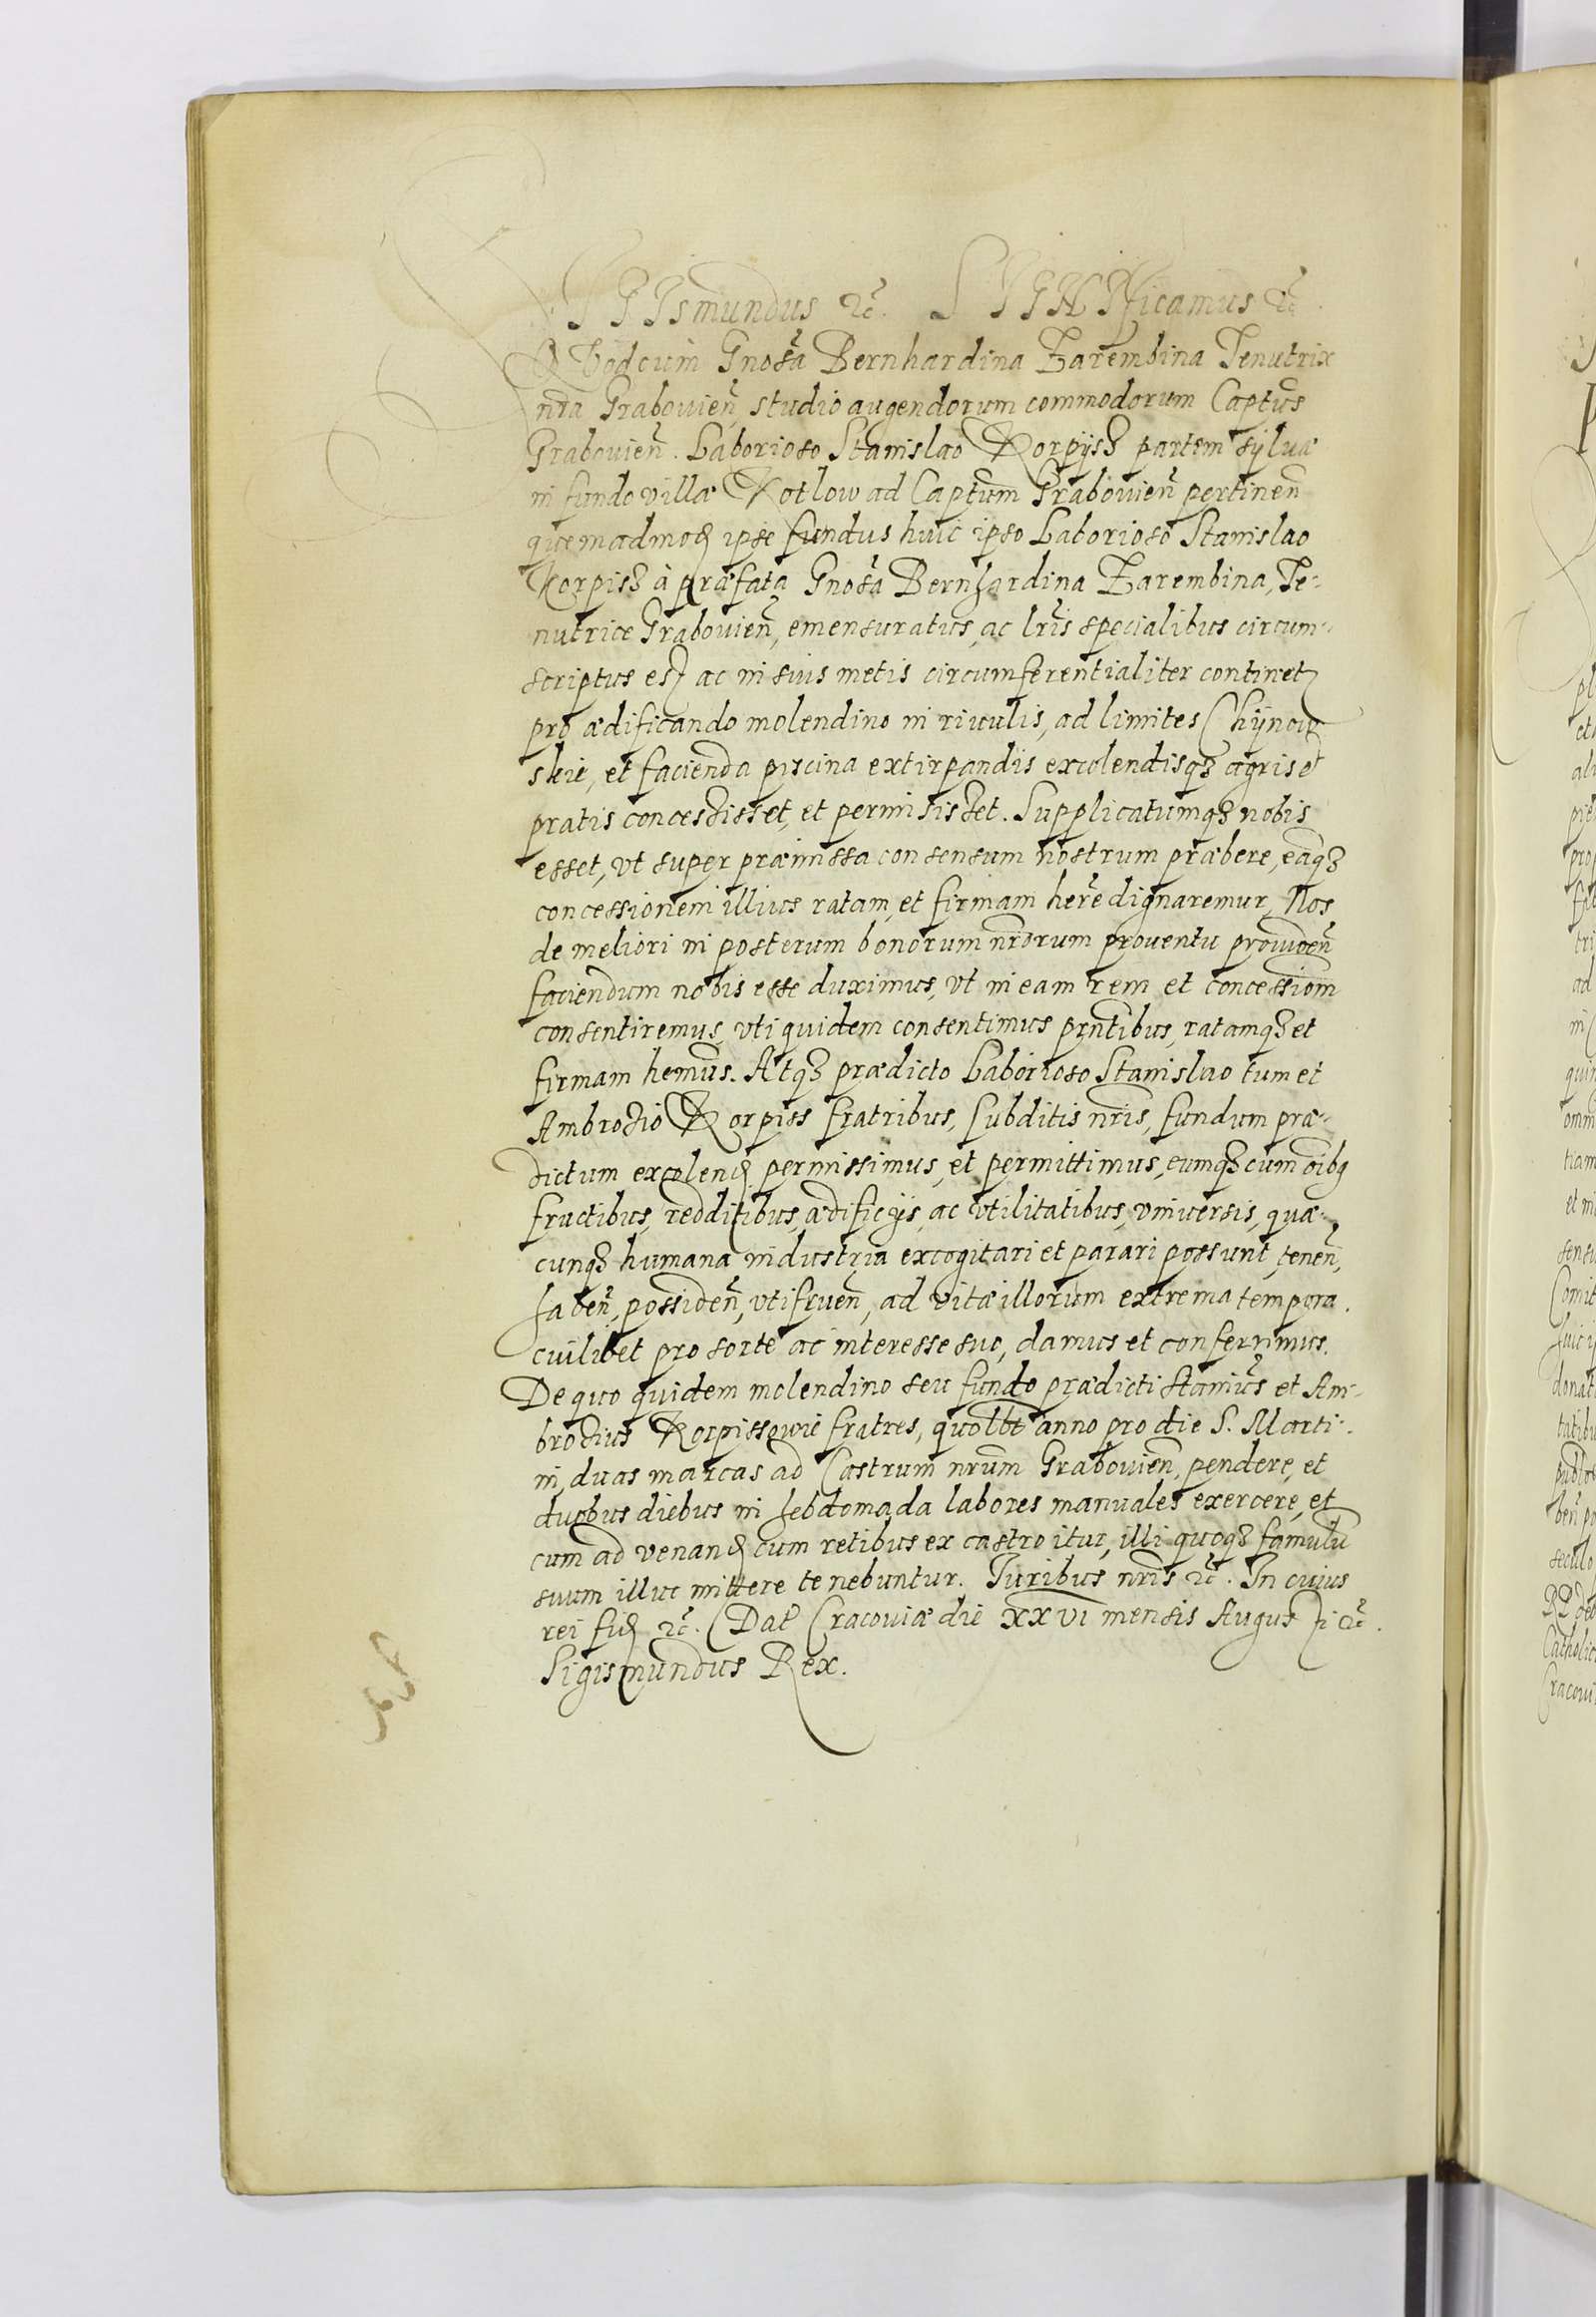 SIGIsmundus etc. SIGNIficamus etc.
Quod cum Gnosa Bernhardina Zarembina Tenutrix
nra Grabouien, studio augendorum commodorum Captus
Grabouien. Laborioso Stanislao Korpysz partem syluæ
in fundo villæ Kotlow ad Captum Grabouien pertinen
quemadmod ipse fundus huic ipso Laborioso Stanislao
Korpisz à præfata Gnosa Bernhardina Zarembina, Te-
nutrice Grabouien, emensuratus, ac lris specialibus circum-
scriptus est ac in suis metis circumferentialiter continet
pro ædificando molendino in riuulis, ad limites Chynow
skie, et facienda piscina extirpandis excolendisq3 agris et
pratis concessisset, et permisisset. Supplicatumq3 nobis
esset, vt super præmissa consensum nostrum præbere, eaq3
concessionem illius ratam, et firmam here dignaremur, Nos
de meliori in posterum bonorum nrorum prouentu prouiden
faciendum nobis esse duximus, vt in eam rem et concessiom
consentiremus, vti quidem consentimus pntibus, ratamq3 et
firmam hemus. Atq3 prædicto Laborioso Stanislao tum et
Ambrosio Korpiss fratribus, subditis nris, fundum præ-
dictum excolend permissimus, et permittimus, eumq3 cum oibq
fructibus, redditibus, ædificijs, ac vtilitatibus, vniuersis, quæ-
cunq3 humana industria excogitari et parari possunt, tenen,
haben, possiden, vtifruen, ad vitæ illorum extrema tempora.
cuilibet pro sorte ac interesse suo, damus et conferrimus.
De quo quidem molendino seu fundo prædicti Stanius et Am-
brosius Korpissowie fratres, quolbt anno pro die S. Marti-
ni, duas marcas ad Castrum nrum Grabouien, pendere, et
duobus diebus in hebdomada labores manuales exercere, et
cum ad venand cum retibus ex castro itur, illi quoq3 famulu
suum illuc mittere tenebuntur. Iuribus nris etc. In cuius
rei fid etc. Dat Cracouiæ die XXVI mensis Augusti etc.
Sigismundus Rex.